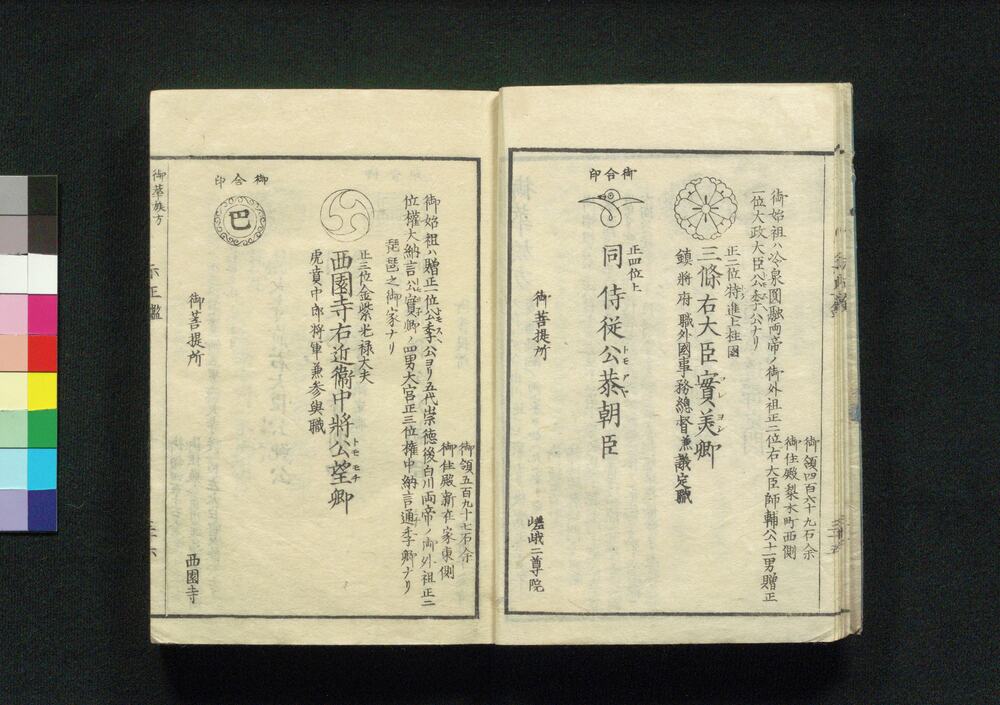 御領四百六十九石余
御住殿梨木町西側
御始祖ハ冷泉圓融両帝ノ御外祖正二位右大臣師輔公十一男贈正
一位大政大臣公季公ナリ
正二位特進上柱國
三條右大臣實美卿
サネヨシ
鎮將府職外國事務總督兼議定職
御合印
正四位上
同侍従公恭朝臣
トモアヤ
御菩提所
嵯峨二尊院
御領五百九十七石余
御住殿新在家東側
御始祖ハ贈正一位公季公ヨリ五代崇徳後白川両帝ノ御外祖正二
位權大納言公實卿ノ四男大宮正三位権中納言通季卿ナリ
琵琶之御家ナリ
正三位金紫光禄大夫
西園寺右近衞中將公望卿
トモモチ
虎賁中郎將軍兼参與職
御合印
巴
御菩提所
西園寺
御華族方